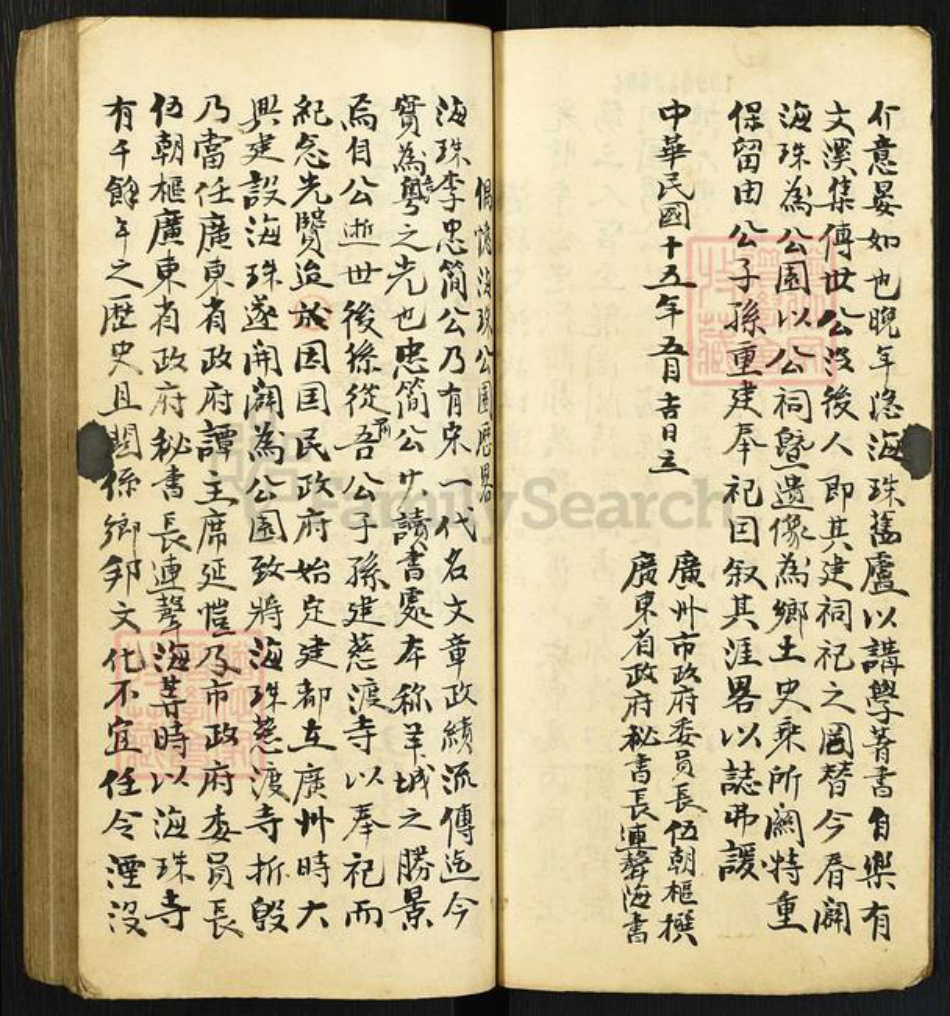 介意晏如也晚年隐海珠舊廬以講學著書自樂有
文溪集傳世公沒後人即其建祠祀之罔替今春闢
海珠為公園以公祠曁遺像為鄉土史乘所闗特重
保留由公子孫重建奉祀因叙其涯畧以誌弗諼
中華民國十五年五月吉日立
廣州市政府委員長伍朝樞撰
廣東省政府秘書長連聲海書
海珠公園歷畧
海珠李忠簡公乃有宋一代名文章政績流傳迄今
實為吾粵之先也忠簡公少讀書處本称羊城之勝景
焉自公逝世後孫從吾公子孫建慈渡寺以奉祀而
紀念先贤迨於因国民政府始定建都立廣州時大
興建設海珠遂開闢為公園致將海珠慈渡寺拆毀
乃當任廣東省政府譚主席延愷及市政府委員長
伍朝樞廣東省政府秘書長連聲海等時以海珠寺
有千餘年之歷史且関係鄉邦文化不宜任令湮沒
FamilySearch